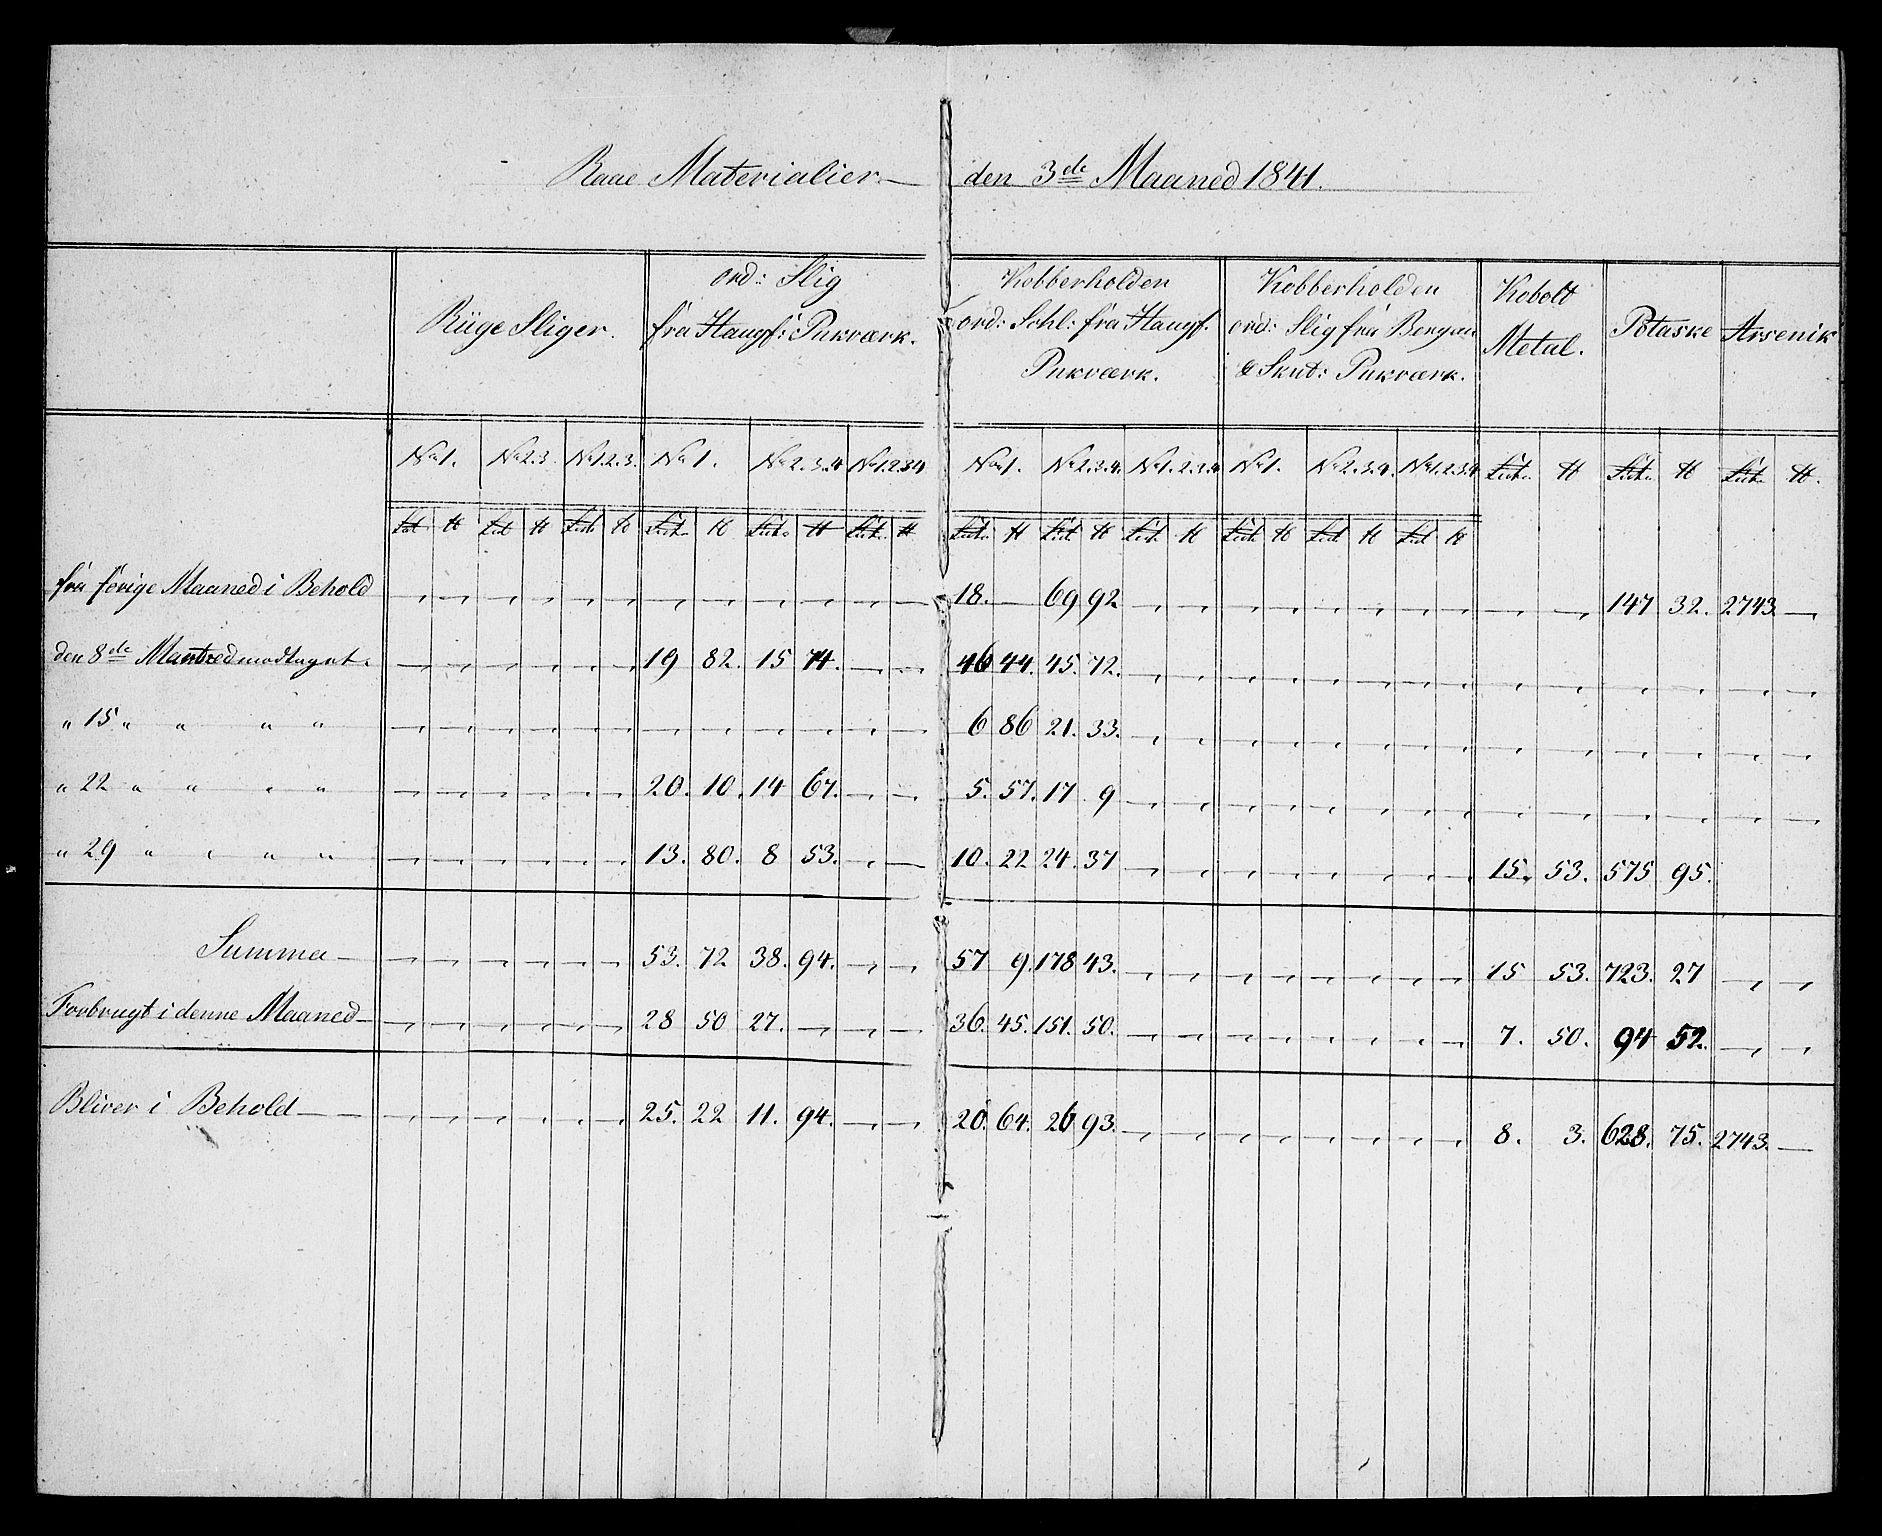 Raae Materialier — den 3de Maaned 1841.
Rüge Sliger. | ord: Slig fra Haugf: Pukværk. | Kobberholden ord: Schl: fra Haugf. Pukværk. | Kobberholden ord: Slig fra Bergan & Skut: Pukværk. | Kobolt Metal. | Potaske | Arsenik
No 1. | No 2.3. | No 1.2.3. | No 1. | No 2.3.4 | No 1.2.3.4 | No 1. | No 2.3.4. | No 1.2.3.4 | No 1. | No 2.3.4. | No 1.2.3.4
fra forige Maaned i Behold | 18. — | 69 92 | 147 32. | 2743 —
den 8de Maaned modtaget. | 19 82. | 15 74. | 46 44. | 45. 72.
" 15 " " " " | 6 86 | 21. 33.
" 22 " " " " | 20. 10. | 14 67. | 5. 57. | 17 9
" 29 " " " " | 13. 80. | 8 53. | 10. 22 | 24. 37 | 15. 53. | 575 95.
Summa — | 53. 72 | 38. 94. | 57 9. | 178 43. | 15 53. | 723. 27
Forbrugt i denne Maaned — | 28 50 | 27. — | 36. 45. | 151. 50. | 7. 50. | 94 52.
Bliver i Behold — | 25. 22 | 11. 94. | 20. 64. | 26 93. | 8. 3. | 628. 75. | 2743. —